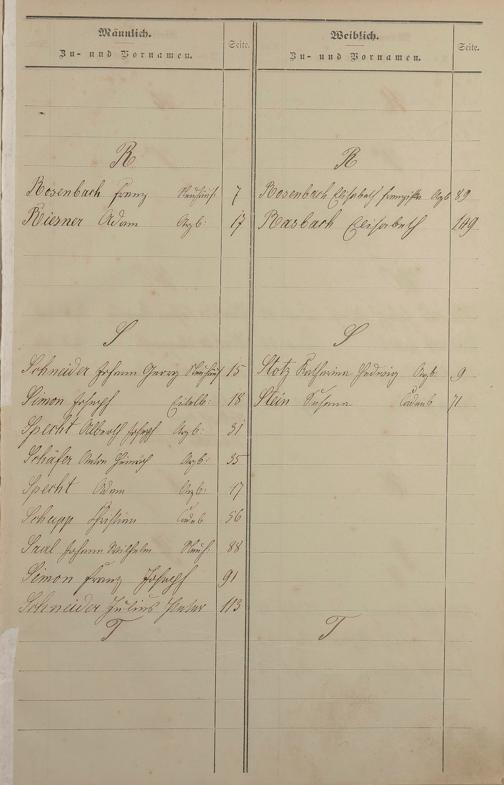 Männlich.
Zu- und Vornamen.
Seite.
R
Rosenbach Franz 7
Riesner Adam Arzb: 17
S
Schneider Johann Georg 15
Simon Joseph Eitelb: 18
Specht Albert Joseph Arzb: 31
Schäfer Anton Heinrich Arzb: 35
Specht Adam Arzb: 17
Schupp Christian Cadenb 56
Saal Johann Wilhelm Neuh: 88
Simon Franz Joseph 91
Schneider Julius Peter 113
T
Weiblich.
Zu- und Vornamen.
Seite.
R
Rosenbach Elisabeth Franziska Arzb 89
Rasbach Elisabeth 149
S
Stotz Katharina Hedwig Arzb: 9
Stein Susanna Cadenb 71
T